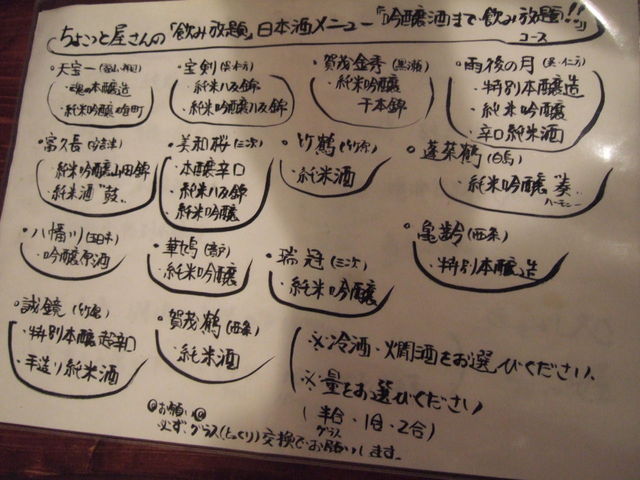 ちょこっと屋さんの「飲み放題」日本酒メニュー「吟醸酒まで飲み放題!!」
コース
・天宝一
・魂の本醸造
・純米吟醸雄町
・宝剣
・純米八反錦
・純米吟醸八反錦
・賀茂金秀(黒瀬)
・純米吟醸
千本錦
・雨後の月(呉・仁方)
・特別本醸造
・純米吟醸
・辛口純米酒
・富久長(安芸津)
・純米吟醸山田錦
・純米酒"鼓"
・美和桜(三次)
・本醸辛口
・純米八反錦
・純米吟醸
・竹鶴(竹原)
・純米酒
・蓬莱鶴
・純米吟醸"奏"
ハーモニー
・八幡川(五日市)
・吟醸原酒
・華鳩(音戸)
・純米吟醸
・瑞冠(三次)
・純米吟醸
・亀齢(西条)
・特別本醸造
・誠鏡(竹原)
・特別本醸超辛口
・手造り純米酒
・賀茂鶴(西条)
・純米酒
※冷酒・燗酒をお選びください。
※量をお選びください
(半合・1合・2合)
グラス
◎お願い◎
必ず、グラス(とっくり)交換でお願いします。